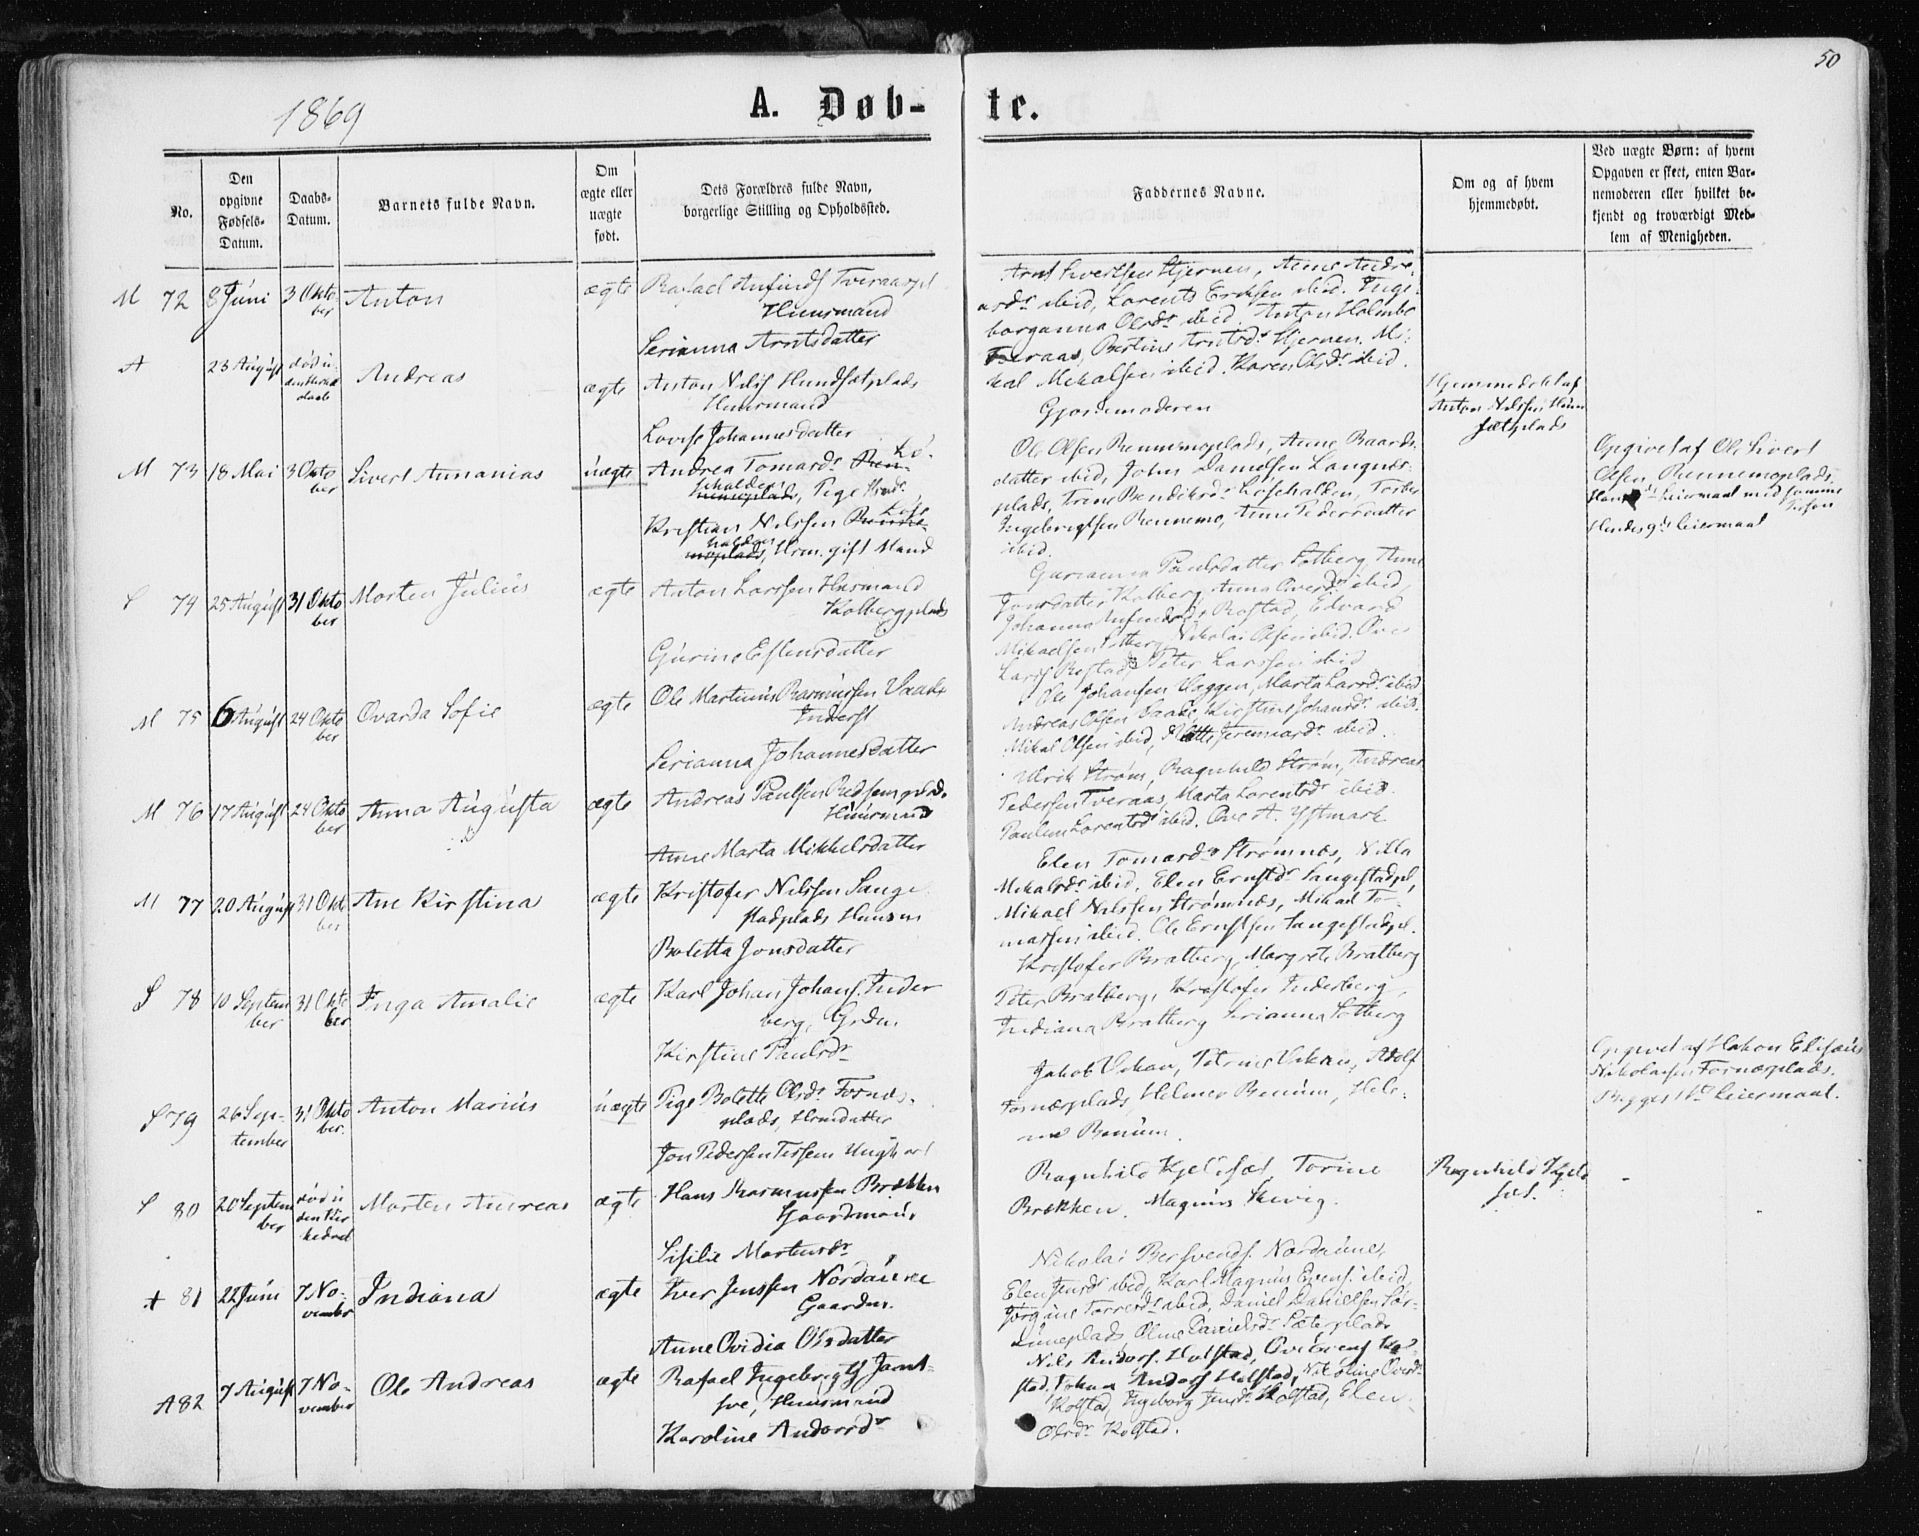 50
1869
A. Døb-te.
No.
Den opgivne Fødsels-Datum.
Daabs-Datum.
Barnets fulde Navn.
Om ægte eller uægte født.
Dets Forældres fulde Navn, borgerlige Stilling og Opholdssted.
Faddernes Navne.
Om og af hvem hjemmedøbt.
Ved uægte Børn: af hvem Opgaven er skeet, enten Barnemoderen eller hvilket bekjendt og troværdigt Medlem af Menigheden.
M 72 8 Juni 3 Oktober Anton ægte Rafael Anfinds Tveraaspl
Huusmand
Serianna Arntsdatter
Arnt Sivertsen Hjernen, Anne Andre-
asdr ibid, Lorents Eriksen ibid. Inge-
borganna Olsdr ibid. Anton Holmbo
Tveraas, Bertine Arntsdr Hjernen. Mi-
kal Mikalsen ibid. Karen Olsdr ibid.
A 23 August død u. Andreas ægte Anton Nilss Hundsætplads
Huusmand
Lovise Johannesdatter
Gjordemoderen
Hjemmedøbt af
Anton Nilssen Hun
sætplads
M 73 18 Mai 3 Oktober Sivert Annanias uægte Andrea Tomasdr
Pige
Kristian Nilssen
Hsm. gift Mand
Ole Olsen Rennemsplads, Anne Baards-
datter ibid, Johs Danielsen Langnes-
plads, Trine Bendiksdr
Ingebrigtsen Rennemo, Anne Pedersdatter
ibid.
Opgivet af Ole Sivert
Olsen Rennemoplads.
Leiermaal med samme
Hendes 9de Leiermaal
S 74 25 August 31 Oktober Morten Julius ægte Anton Larssen Husmand
Kolbergplads
Gurine Estensdatter
Gurianna Paulsdatter Solberg, Anne
Jonsdatter Kolberg, Anna Oversdr ibid,
Johanna Anfinds Rostad, Edvard
Mikaelsen Solberg, Nikolai Olsen ibid. Ove
Larss Rostad, Peter Larssen ibid
M 75 6 August 24 Oktober Ovarda Sofie ægte Ole Martinus Rasmussen Vaade
Inderst
Serianna Johannesdatter
Ole Johansen Haggen, Marta Larsdr ibid
Andreas Olsen Vaade, Kirstine Johansdr ibid.
Mikal Olsen ibid, Mette Jeremiasdr ibid.
M 76 17 August 24 Oktober Anna Augusta ægte Andreas Paulsen
Huusmand
Anne Marta Mikkelsdatter
Ulrik Strøm, Ragnhild Strøm, Andreas
Pedersen Tveraas, Marta Lorentsdr ibid.
Pauline Lorentsdr ibid. Ove A. Ystmark
M 77 20 August 31 Oktober Ane Kirstina ægte Kristofer Nilssen Sange-
stadplads Huusm
Boletta Jonsdatter
Elen Tomasdr Strømnæs, Nilla
Mikalsdr ibid, Elen Ernstdr Sangestadpl,
Mikael Nilssen Strømnæs, Mikal To-
massen ibid. Ole Ernstsen Sangestadpl.
S 78 10 September 31 Oktober Inga Amalie ægte Karl Johan Johans. Inder
berg, Grdm.
Kirstine Paulsdr
Kristofer Bratberg, Margrete Bratberg
Peter Bratberg, Kristofer Inderberg,
Indiana Bratberg Serianna Solberg
S 79 26 September 31 Oktober Anton Marius uægte Pige Bolette Olsdr Fornes-
plads, Hsmdatter
Jon Pedersen Ungkarl
Jakob Vikan, Petrine Vikan, Adolf
Fornesplads, Helmer Benum, Hele-
ne Benum.
Opgivet af Hakon Elisæus
Nikolaisen Fornesplads.
Begges 1ste Leiermaal.
S 80 20 September død u Morten Andreas ægte Hans Rasmussen Brækken
Gaardmand
Sisilie Martensdr
Ragnhild Kjelsæt, Torine
Brækken. Magnus Skevig.
Ragnhild Kjels
sæt.
+ 81 22 Juni 7 November Indiana ægte Iver Jenssen Nordaune
Gaardm.
Anne Ovidia Olsdatter
Nikolai Bersvends. Nordaune,
Elen Jensdr ibid, Karl Magnus Evens. ibid,
Jørgine Torresdr ibid, Daniel Danielsen Sør-
auneplads, Oline Danielsdr Sæterplads
A 82 7 August 7 November Ole Andreas ægte Rafael Ingebrigts Jamt-
sve, Huusmand
Karoline Andorsdr
Nils Andors. Holstad, Ove Evens Kol-
stad. Johan Andors Holstad, Nikoline Oversdr
Kolstad, Ingeborg Jensdr Kolstad, Elen
Olsdr Kolstad.